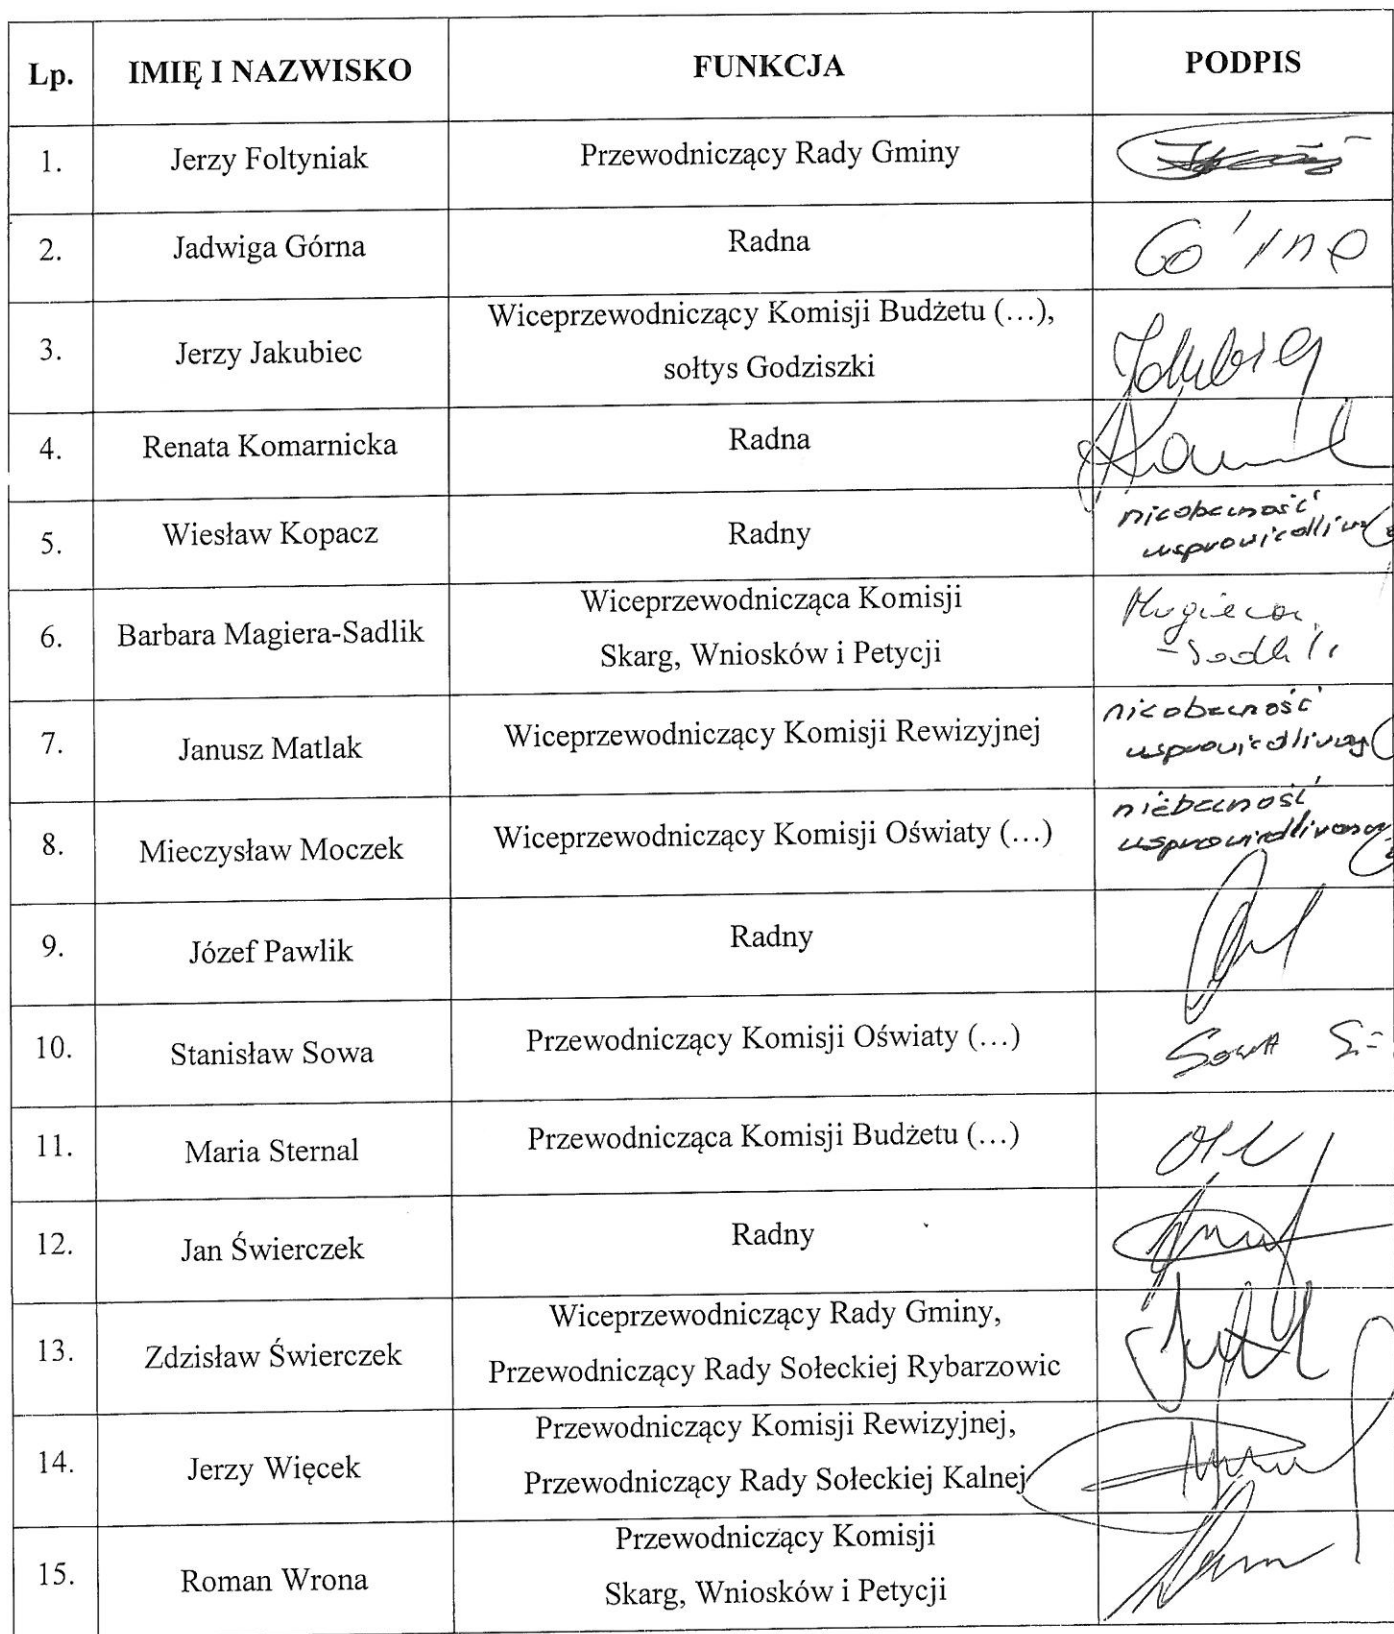 Lp. IMIĘ I NAZWISKO FUNKCJA PODPIS
1. Jerzy Foltyniak Przewodniczący Rady Gminy
2. Jadwiga Górna Radna Górna
3. Jerzy Jakubiec Wiceprzewodniczący Komisji Budżetu (…),
sołtys Godziszki
4. Renata Komarnicka Radna
5. Wiesław Kopacz Radny nieobecność
6. Barbara Magiera-Sadlik Wiceprzewodnicząca Komisji Magiera
Skarg, Wniosków i Petycji
7. Janusz Matlak Wiceprzewodniczący Komisji Rewizyjnej nieobecność
8. Mieczysław Moczek Wiceprzewodniczący Komisji Oświaty (…)
9. Józef Pawlik Radny
10. Stanisław Sowa Przewodniczący Komisji Oświaty (…) Sowa
11. Maria Sternal Przewodnicząca Komisji Budżetu (…)
12. Jan Świerczek Radny
13. Zdzisław Świerczek Wiceprzewodniczący Rady Gminy,
Przewodniczący Rady Sołeckiej Rybarzowic
14. Jerzy Więcek Przewodniczący Komisji Rewizyjnej,
Przewodniczący Rady Sołeckiej Kalnej
15. Roman Wrona Przewodniczący Komisji
Skarg, Wniosków i Petycji